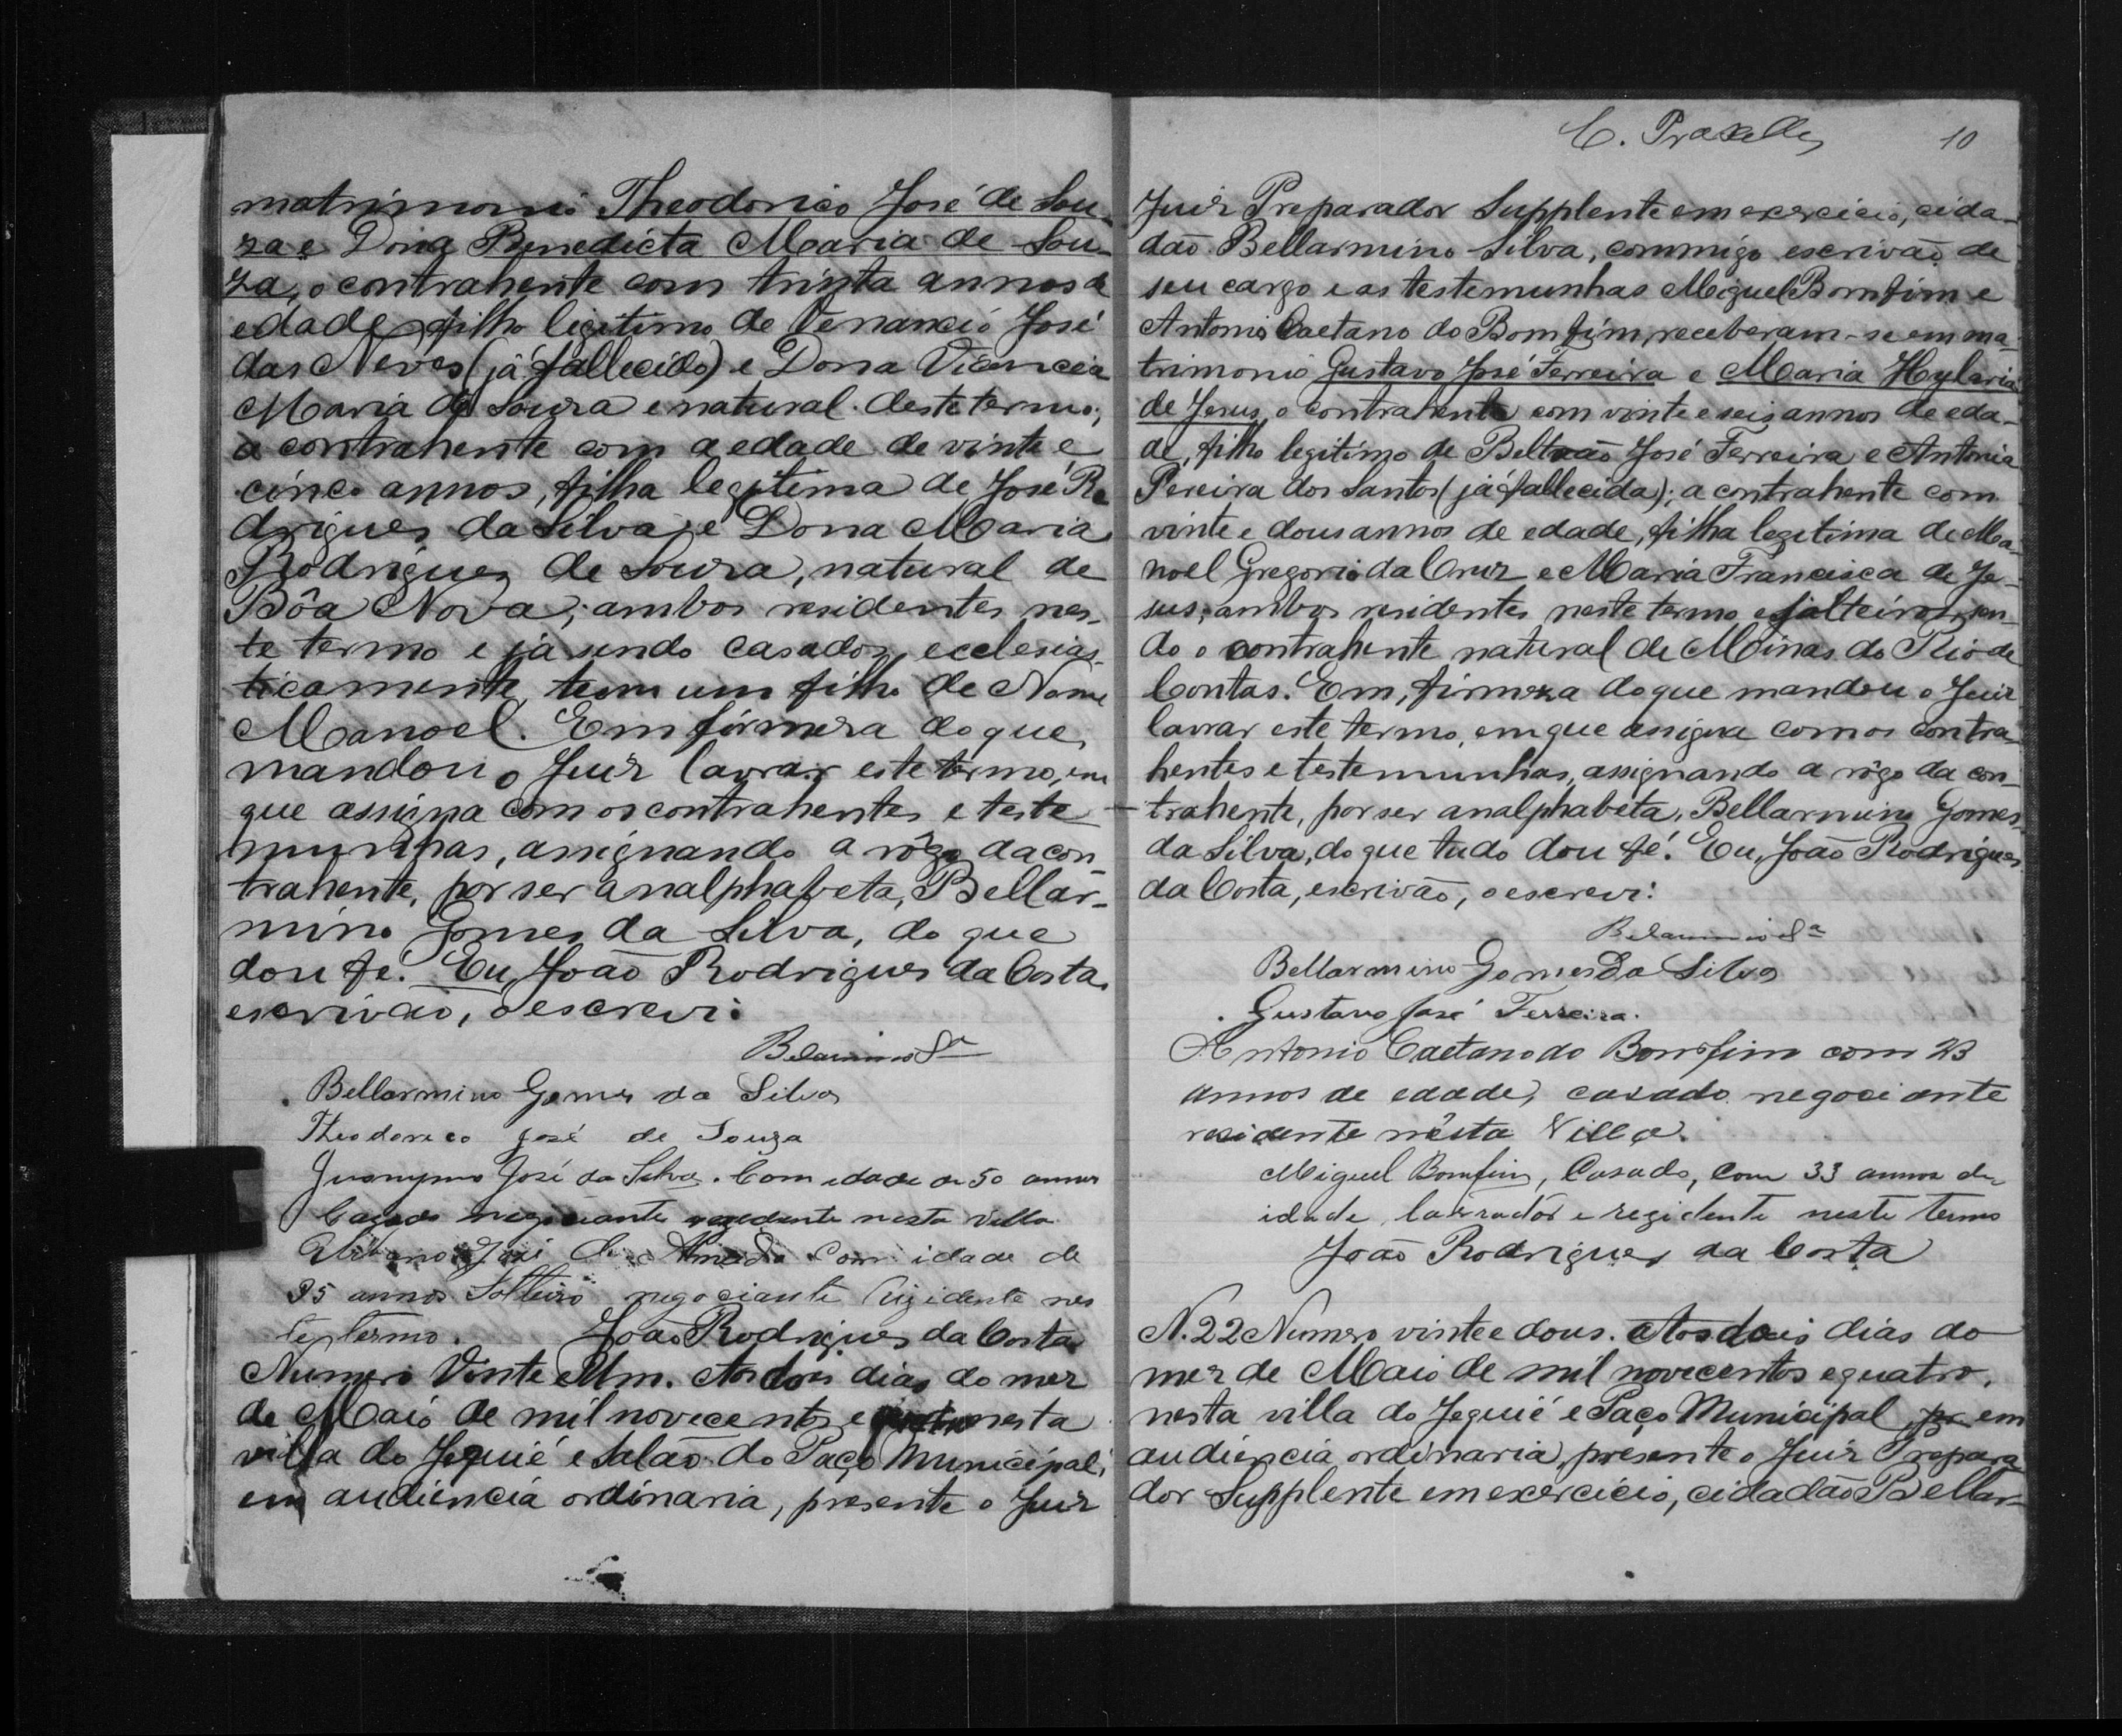 matrimonio Theodorico José de Sou-
za e Dona Benedicta Maria de Sou-
za, o contrahente com trinta annos de
edade, filho legitimo de Venancio José
das Neves (já fallecido) e Dona Vicencia
Maria de Souza e natural deste termo;
a contrahente com a edade de vinte e
cinco annos, filha legitima de José Ro
drigues da Silva e Dona Maria
Rodrigues de Souza, natural de
Bôa Nova; ambos residentes nes-
te termo e já sendo casados ecclesias-
ticamente, teem um filho de Nome
Manoel. Em firmeza do que,
mandou o Juiz lavrar este termo, em
que assigna com os contrahentes e teste
munhas, assignando a rôgo da con-
trahente, por ser analphabeta, Bellar-
mino Gomes da Silva, do que
dou fé. Eu, João Rodrigues da Costa,
escrivão, o escrevi:
Belarmino Sª
Bellarmino Gomes da Silva
Theodorico José de Souza
Jeronymo José da Silva. Com edade de 50 annos
Cazado negociante rezedente nesta Villa
José de Almeida Com idade de
35 annos Solteiro negociante Rezidente nes
te termo. João Rodrigues da Costa
Numero Vinte e Um. Aos dois dias do mez
de Maio de mil novecentos e quatro nesta
villa do Jequié e Salão do Paço Municipal,
em audiencia ordinaria, presente o Juiz
C. Praxedes 10
Juiz Preparador Supplente em exercicio, cida-
dão Bellarmino Silva, commigo escrivão de
seu cargo e as testemunhas Miguel Bomfim e
Antonio Caetano do Bomfim, receberam-se em ma-
trimonio Gustavo José Ferreira e Maria Hylaria
de Jesus, o contrahente com vinte e seis annos de eda-
de, filho legitimo de Beltrão José Ferreira e Antonia
Pereira dos Santos (já fallecida); a contrahente com
vinte e dous annos de edade, filha legitima de Ma-
noel Gregorio da Cruz e Maria Francisca de Je-
sus; ambos residentes neste termo e solteiros, sen-
do o contrahente natural de Minas do Rio de
Contas. Em, firmeza do que mandou o Juiz
lavrar este termo, em que assigna com os contra-
hentes e testemunhas, assignando a rôgo da con-
trahente, por ser analphabeta, Bellarmino Gomes
da Silva, do que tudo dou fé. Eu, João Rodrigues
da Costa, escrivão, o escrevi:
Belarmino Sª
Bellarmino Gomes Da Silva
Gustavo José Ferreira.
Antonio Caetano do Bomfim com 23
annos de edade, casado negociante
residente nêsta Villa.
Miguel Bomfim, Casado, Com 33 annos de
idade, lavrador e rezidente neste termo
João Rodrigues da Costa
N. 22 Numero vinte e dous. Aos dois dias do
mez de Maio de mil novecentos e quatro,
nesta villa do Jequié e Paço Municipal, em
audiencia ordinaria, presente o Juiz Prepara
dor Supplente em exercicio, cidadão Bellar-